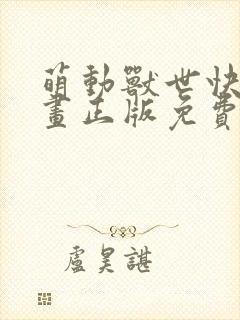 萌動獸世快
畫正版免費
盧昊諶